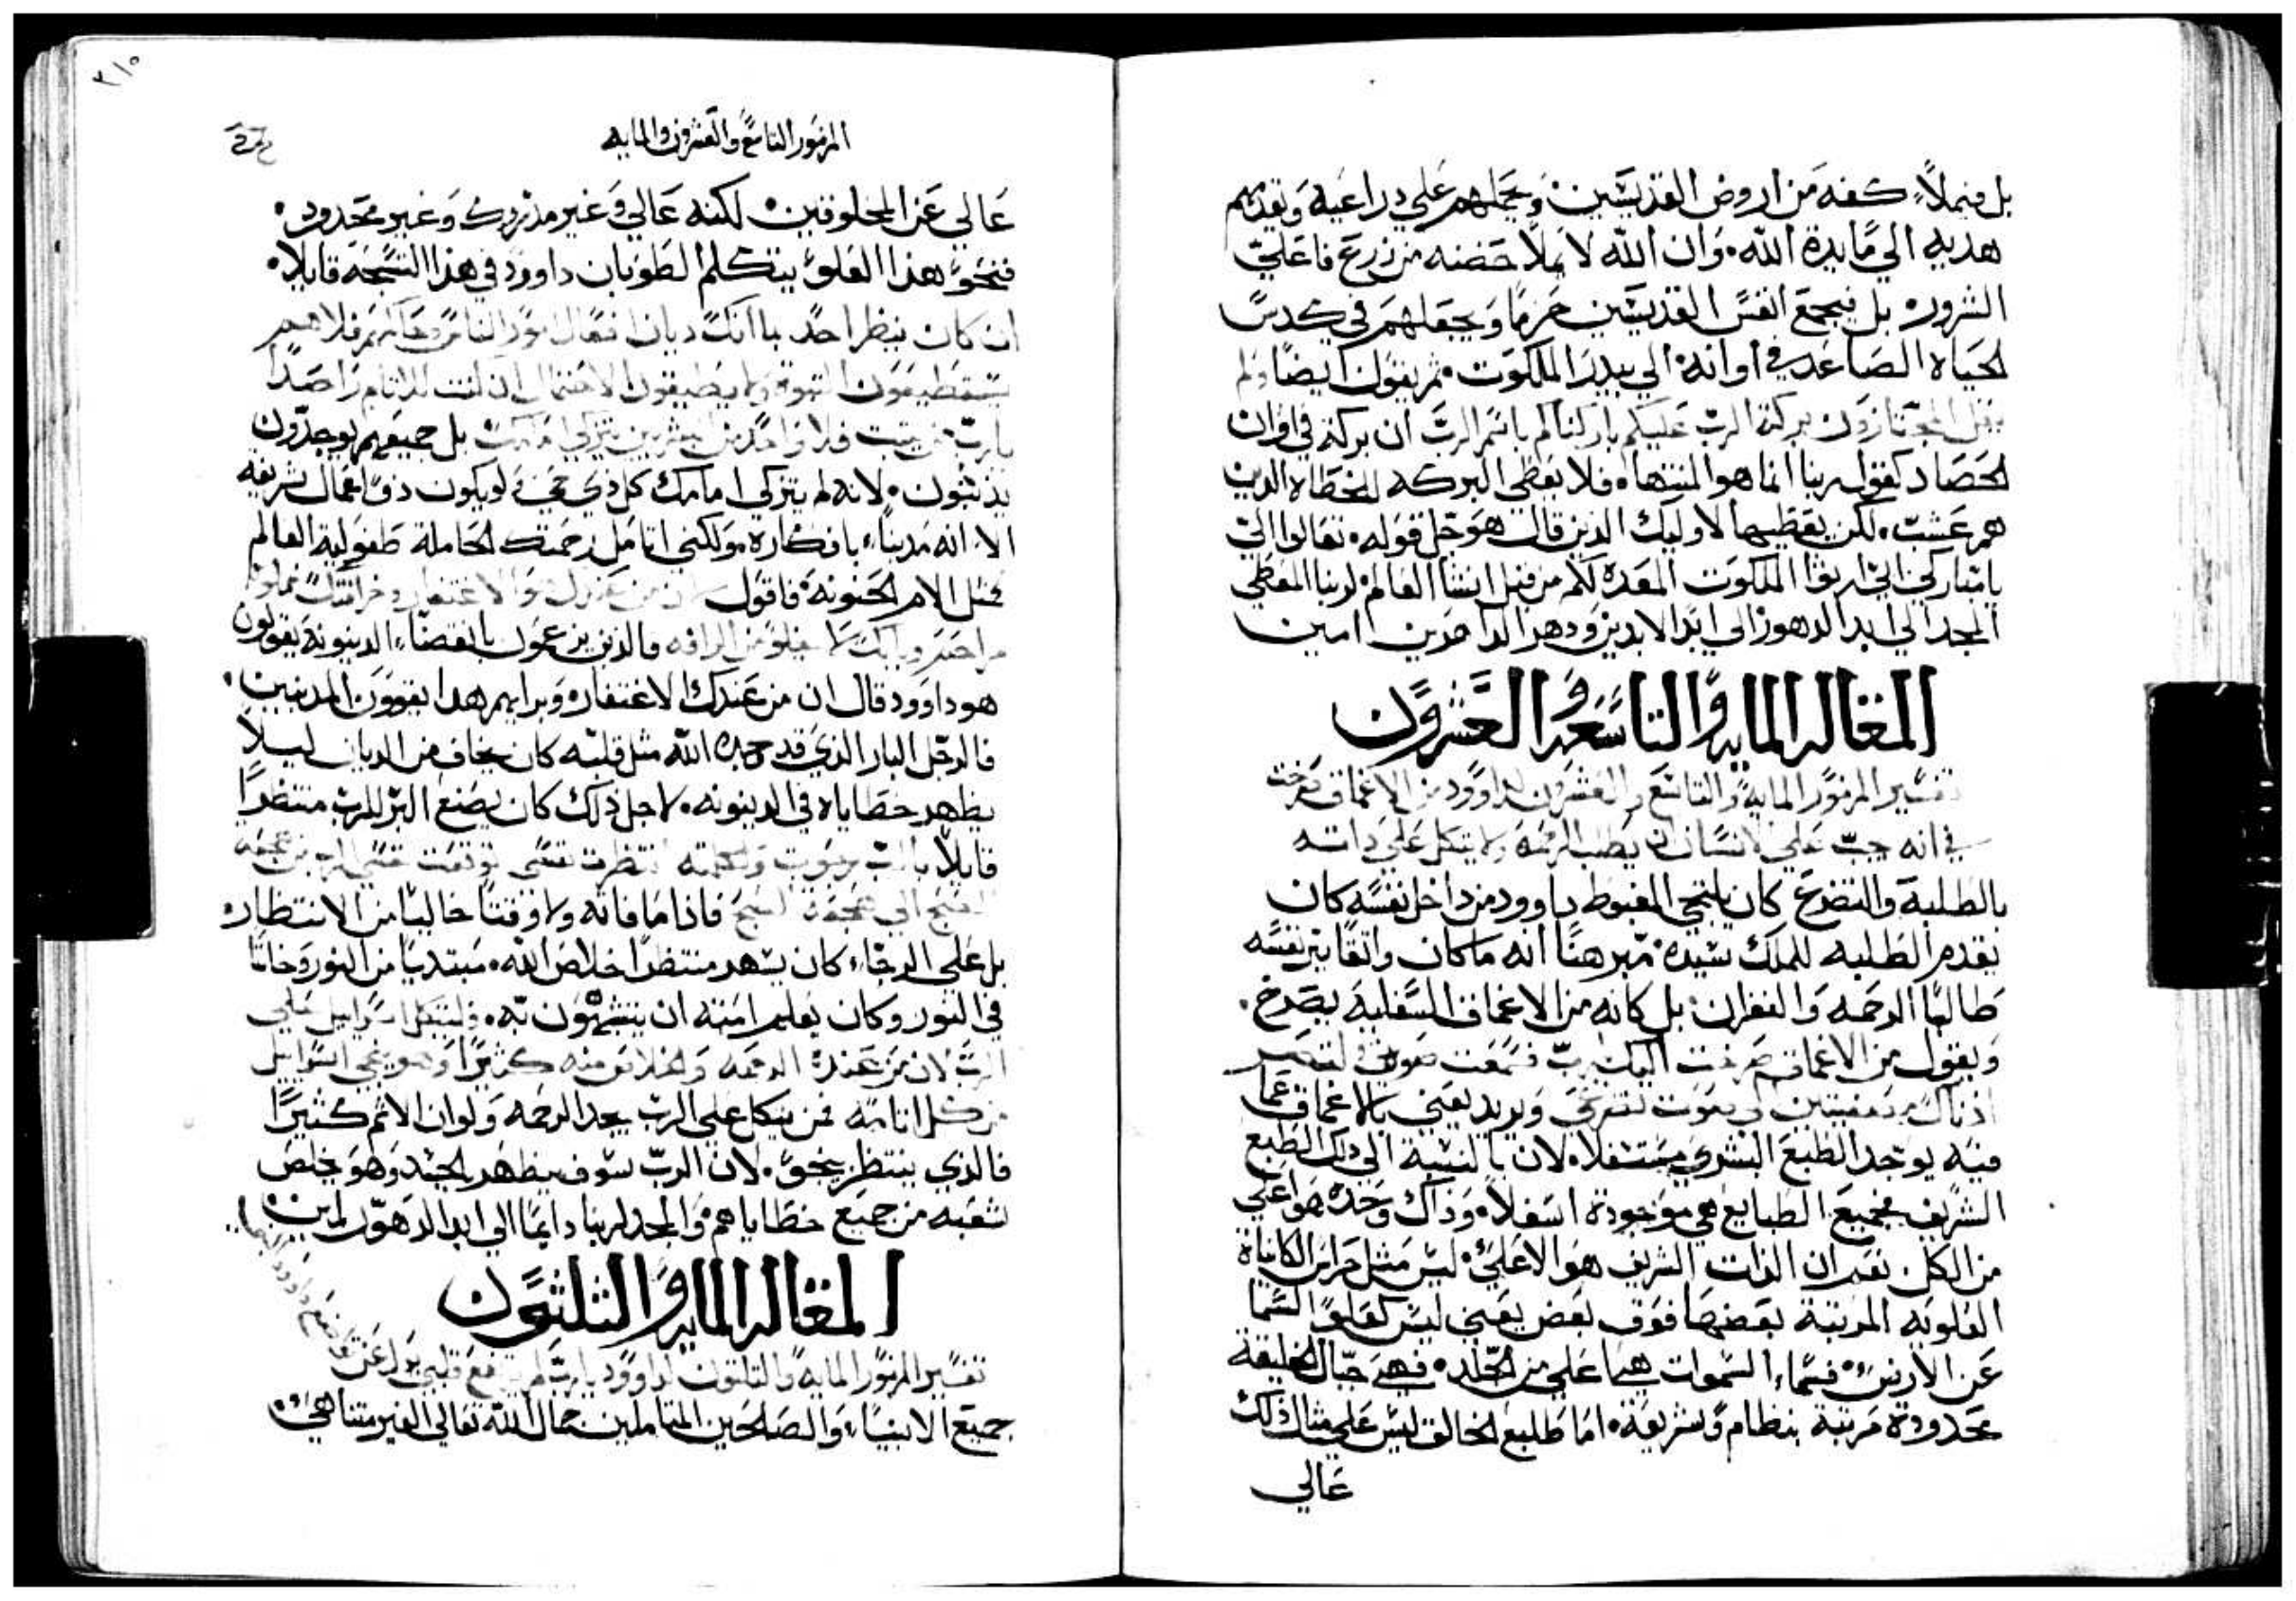 بل فيملأ كفه من اروض القديسين ويحملهم علي دراعيه ويقدمهم
هديه الي مايدة الله. وان الله لا يملا حضنه من زرع فاعلي
الشرور. بل فيجمع انفس القديسين حزما ويجعلهم في كدس
الحياه الصاعد في اوانه الي بيدر الملكوت. ثم يقول ايضا ولم
يقل المجتازون بركة الرب عليكم باركناكم باسم الرب ان بركة في اوان
الحصاد كقول ربنا انما هو المنتها. فلا يعطي البركه للخطاه الدين
هم عشب. لكن يعطيها لاوليك الدين قال هو جل قوله. تعالوا الي
يا مباركي ابي اريثوا الملكوت المعده لكم من قبل انشا العالم لربنا المعطي
المجد الي ابد الدهور والي ابد الابدين ودهر الداهرين امين
المقاله المايه والتاسعه والعشرون
تفسير المزمور المايه والتاسع والعشرون لداوود من الاعماق صرخت
في انه يجب علي الانسان ان يطلب الرحمه ولا يتكل علي داته
بالطلبة والتضرع كان يلتجي المغبوط داوود من داخل نفسه كان
يقدم الطلبه للملك سيده. مبرهنا انه ما كان واثقا ببر نفسه
طالبا الرحمه والغفران. بل كانه من الاعماق السفليه يصرخ.
ويقول من الاعماق صرخت اليك يارب فسمعت صوتي لتصير
اذناك مصغيتين الي صوت تضرعي ويريد يعني بالاعماق عما
فيه يوجد الطبع البشري مستفلا. لان بالنسبة الي ذلك الطبع
الشريف فجميع الطبايع هي موجودة اسفلا. وذاك وحده هو اعلي
من الكل. نعم ان الذات الشريف هو الاعلي. ليس مثل مراتب الكاينات
العلويه المرتبة بعضها فوق بعض يعني ليس كعلو السما
عن الارض. فسماء السموات هي اعلي من الجلد. فهي جبال الخليقة
محدودة مرتبة بنظام وشريعة. اما طلبع الخالق ليس علي مثال ذلك
عالي
المزمور التاسع والعشرون والمايه
عالي عن المخلوقين. لكنه عالي وغير مدروك وغير محدود.
فنحو هذا العلو يتكلم الطوبان داوود في هذا التسبحه قايلا.
ان كان ينظر احد بانك ديان افعال امور الناس وعالم فلاهم
يستطيعون الثبوت ولا يطيقون الاحتمال ان كنت للاثام راصدا
يارب من يثبت فلا واحد من البشريين يتزكي امامك بل جميعهم يوجدون
يذنبون. لانه لم يتزكي امامك كل ذي حي ولو يكون ذو اعمال شريفه
الا انه مدينا بافكاره. ولكني اتامل رحمتك الحاملة طفولية العالم
مثل الام الحنونه. فاقول لان من عندك هو الاغتفار وخزاينك مملوه
مراحم وبابك لا يغلق من الرافه فالذين يزعمون بانقضاء الدينونة يقولون
هوداوود قال ان من عندك الاغتفار وبرايهم هدا يقوون المدنبين.
فالرجل البار الذي قد وجده الله مثل قلبه كان يخاف من الديان ليلا
يظهر خطاياه في الدينونه. لاجل ذلك كان يصنع البر للرب منتظرا
قايلا يارب رجوت وكلمته انتظرت نفسي توقعت نفسي الرب من محرس
الصبح الي محرس الصبح فاذا ما فاته ولا وقتا خاليا من الانتظار
بل علي الرجاء كان يسهر منتظرا خلاص الله. مبتديا من النور وخاتما
في النور وكان يعلم امته ان يتشبهون به. فليتكل اسراييل علي
الرب لان من عنده الرحمه والخلاص منه كثيرا وهو ينجي اسراييل
من كل اثامه فمن يتكل علي الرب يجد الرحمه ولو ان الاثم كثيرا
فالذي ينتظر بنحو. لان الرب سوف يظهر لجنده وهو يخلص
شعبه من جميع خطاياهم. والمجد لربنا دايما الي ابد الدهور امين
المقاله المايه والثلثون
تفسير المزمور المايه والثلثون لداوود يارب لم يرتفع قلبي يدل عن تواضع داوود النبي
جميع الانبياء والصلحين المتاملين جمال الله تعالي الغير متناهي